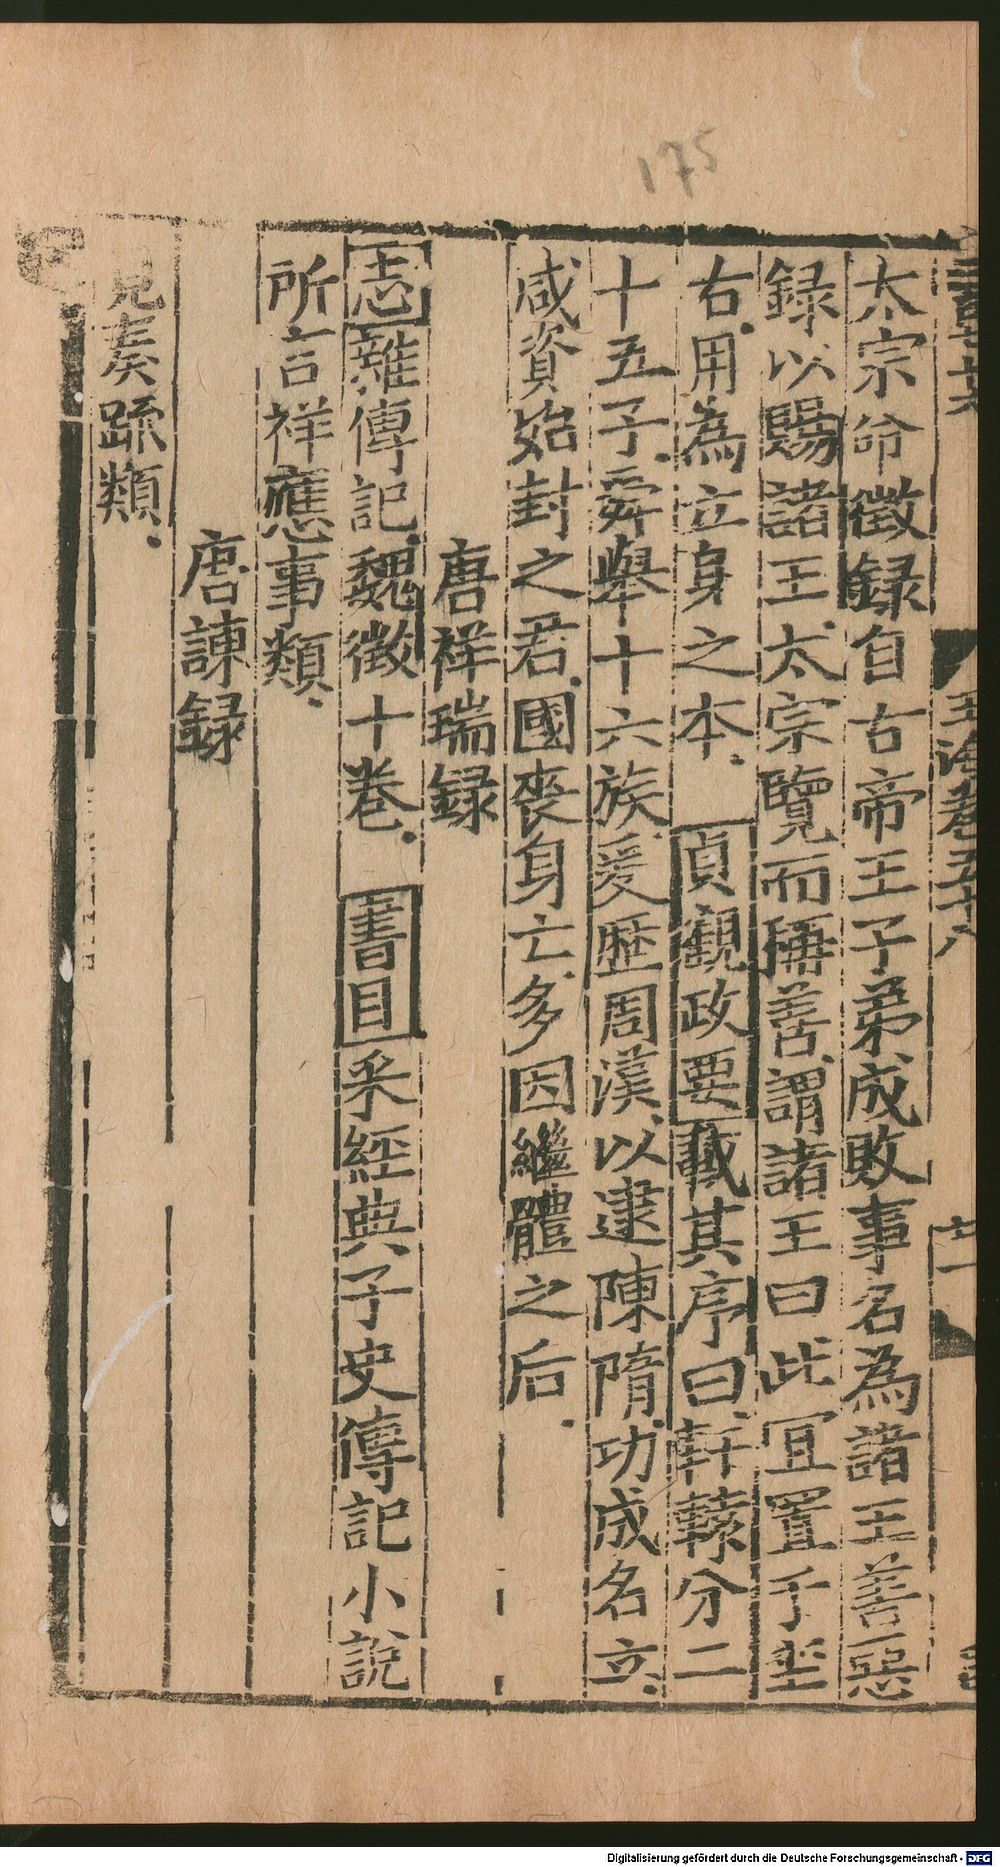 175
玉海卷五十八
太宗命徵録自古帝王子弟成敗事名為諸王善惡
録以賜諸王太宗覽而稱善謂諸王曰此冝置于坐
右用為立身之本貞觀政要載其序曰軒轅分二
十五子舜舉十六族爰歴周漢以逮陳隋功成名立
咸資始封之君國喪身亡多因繼體之后
唐祥瑞録
志雜傳記魏徵十卷 書目采經典子史傳記小說
所言祥應事類
唐諫録
見奏䟽類
Digitalisierung gefördert durch die Deutsche Forschungsgemeinschaft - DFG